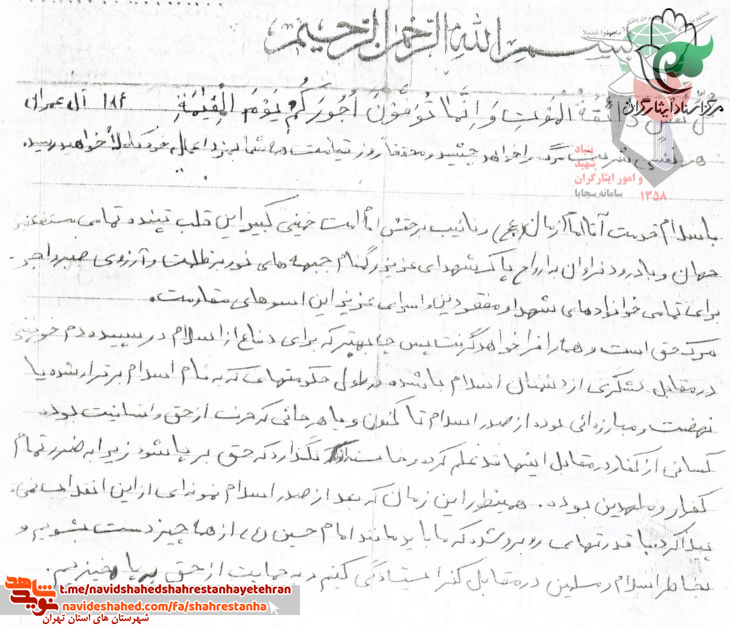 بسم الله الرحمن الرحیم
مرکز اسناد ایثارگران
کل نفس ذائقة الموت و انما توفون اجورکم یوم القیمة ۱۸۴ آل عمران
هر نفسی شربت مرگ را خواهد چشید و محققا روز قیامت همه شما به مزد اعمال خود کاملا خواهید رسید
بنیاد شهید و امور ایثارگران
سامانه سجایا
۱۳۵۸
با سلام خدمت آقا امام زمان (عج) و نائیب برحقش امام امت خمینی کبیر این قلب تپنده تمامی مستضعفین
جهان و با درود فراوان به ارواح پاک شهدای عزیز و گمنام جبهه های نور بر ظلمت و آرزوی صبر و اجر
برای تمامی خانوادهای شهدا و مفقودین و اسرای عزیز این اسوهای مقاومت.
مرگ حق است و همه را فرا خواهد گرفت پس چه بهتر که برای دفاع از اسلام در سپیده دم خونین
در مقابل لشکری از دشمنان اسلام باشد در طول حکومتهایی که به نام اسلام برقرار شده یا
نهضت و مبارزه ائی بوده از صدر اسلام تا کنون و یا هر جائی که حرف از حق و انسانیت بوده
کسانی از کفار در مقابل اینها قد علم کرده و خواسته اند نگذارد که حق بر پا شود زیرا به ضرر تمام
کفار و ملحدین بوده. همینطور این زمان که بعد از صدر اسلام نمونه ای از این انقلاب خمینی
پیدا کرد با قدرتهایی روبرو شد که ما باید مانند امام حسین (ع) از همه چیز دست بشویم و
بخاطر اسلام و مسلمین در مقابل کفر ایستادگی کنیم و به حمایت از حق بر پا خیزیم.
نوید شاهد
t.me/navidshahedshahrestanhayetehran
navideshahed.com/fa/shahrestanha
شهرستان های استان تهران